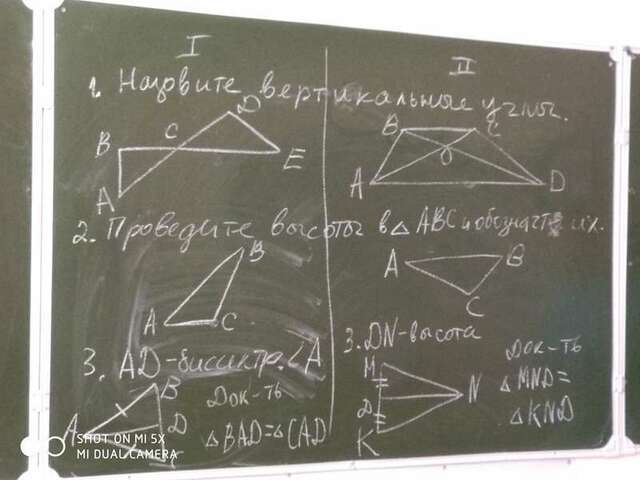 I
II
1. Назовите вертикальные углы.
D
B
C
E
A
B
C
O
A
D
2. Проведите высоты в △ ABC и обозначте их.
B
A
C
A
B
C
3. AD-биссиктр. ∠A
Док-ть
△BAD=△CAD
B
A
D
3. DN-высота
Док-ть
△MND=
△KND
M
N
D
K
SHOT ON MI 5X
MI DUAL CAMERA